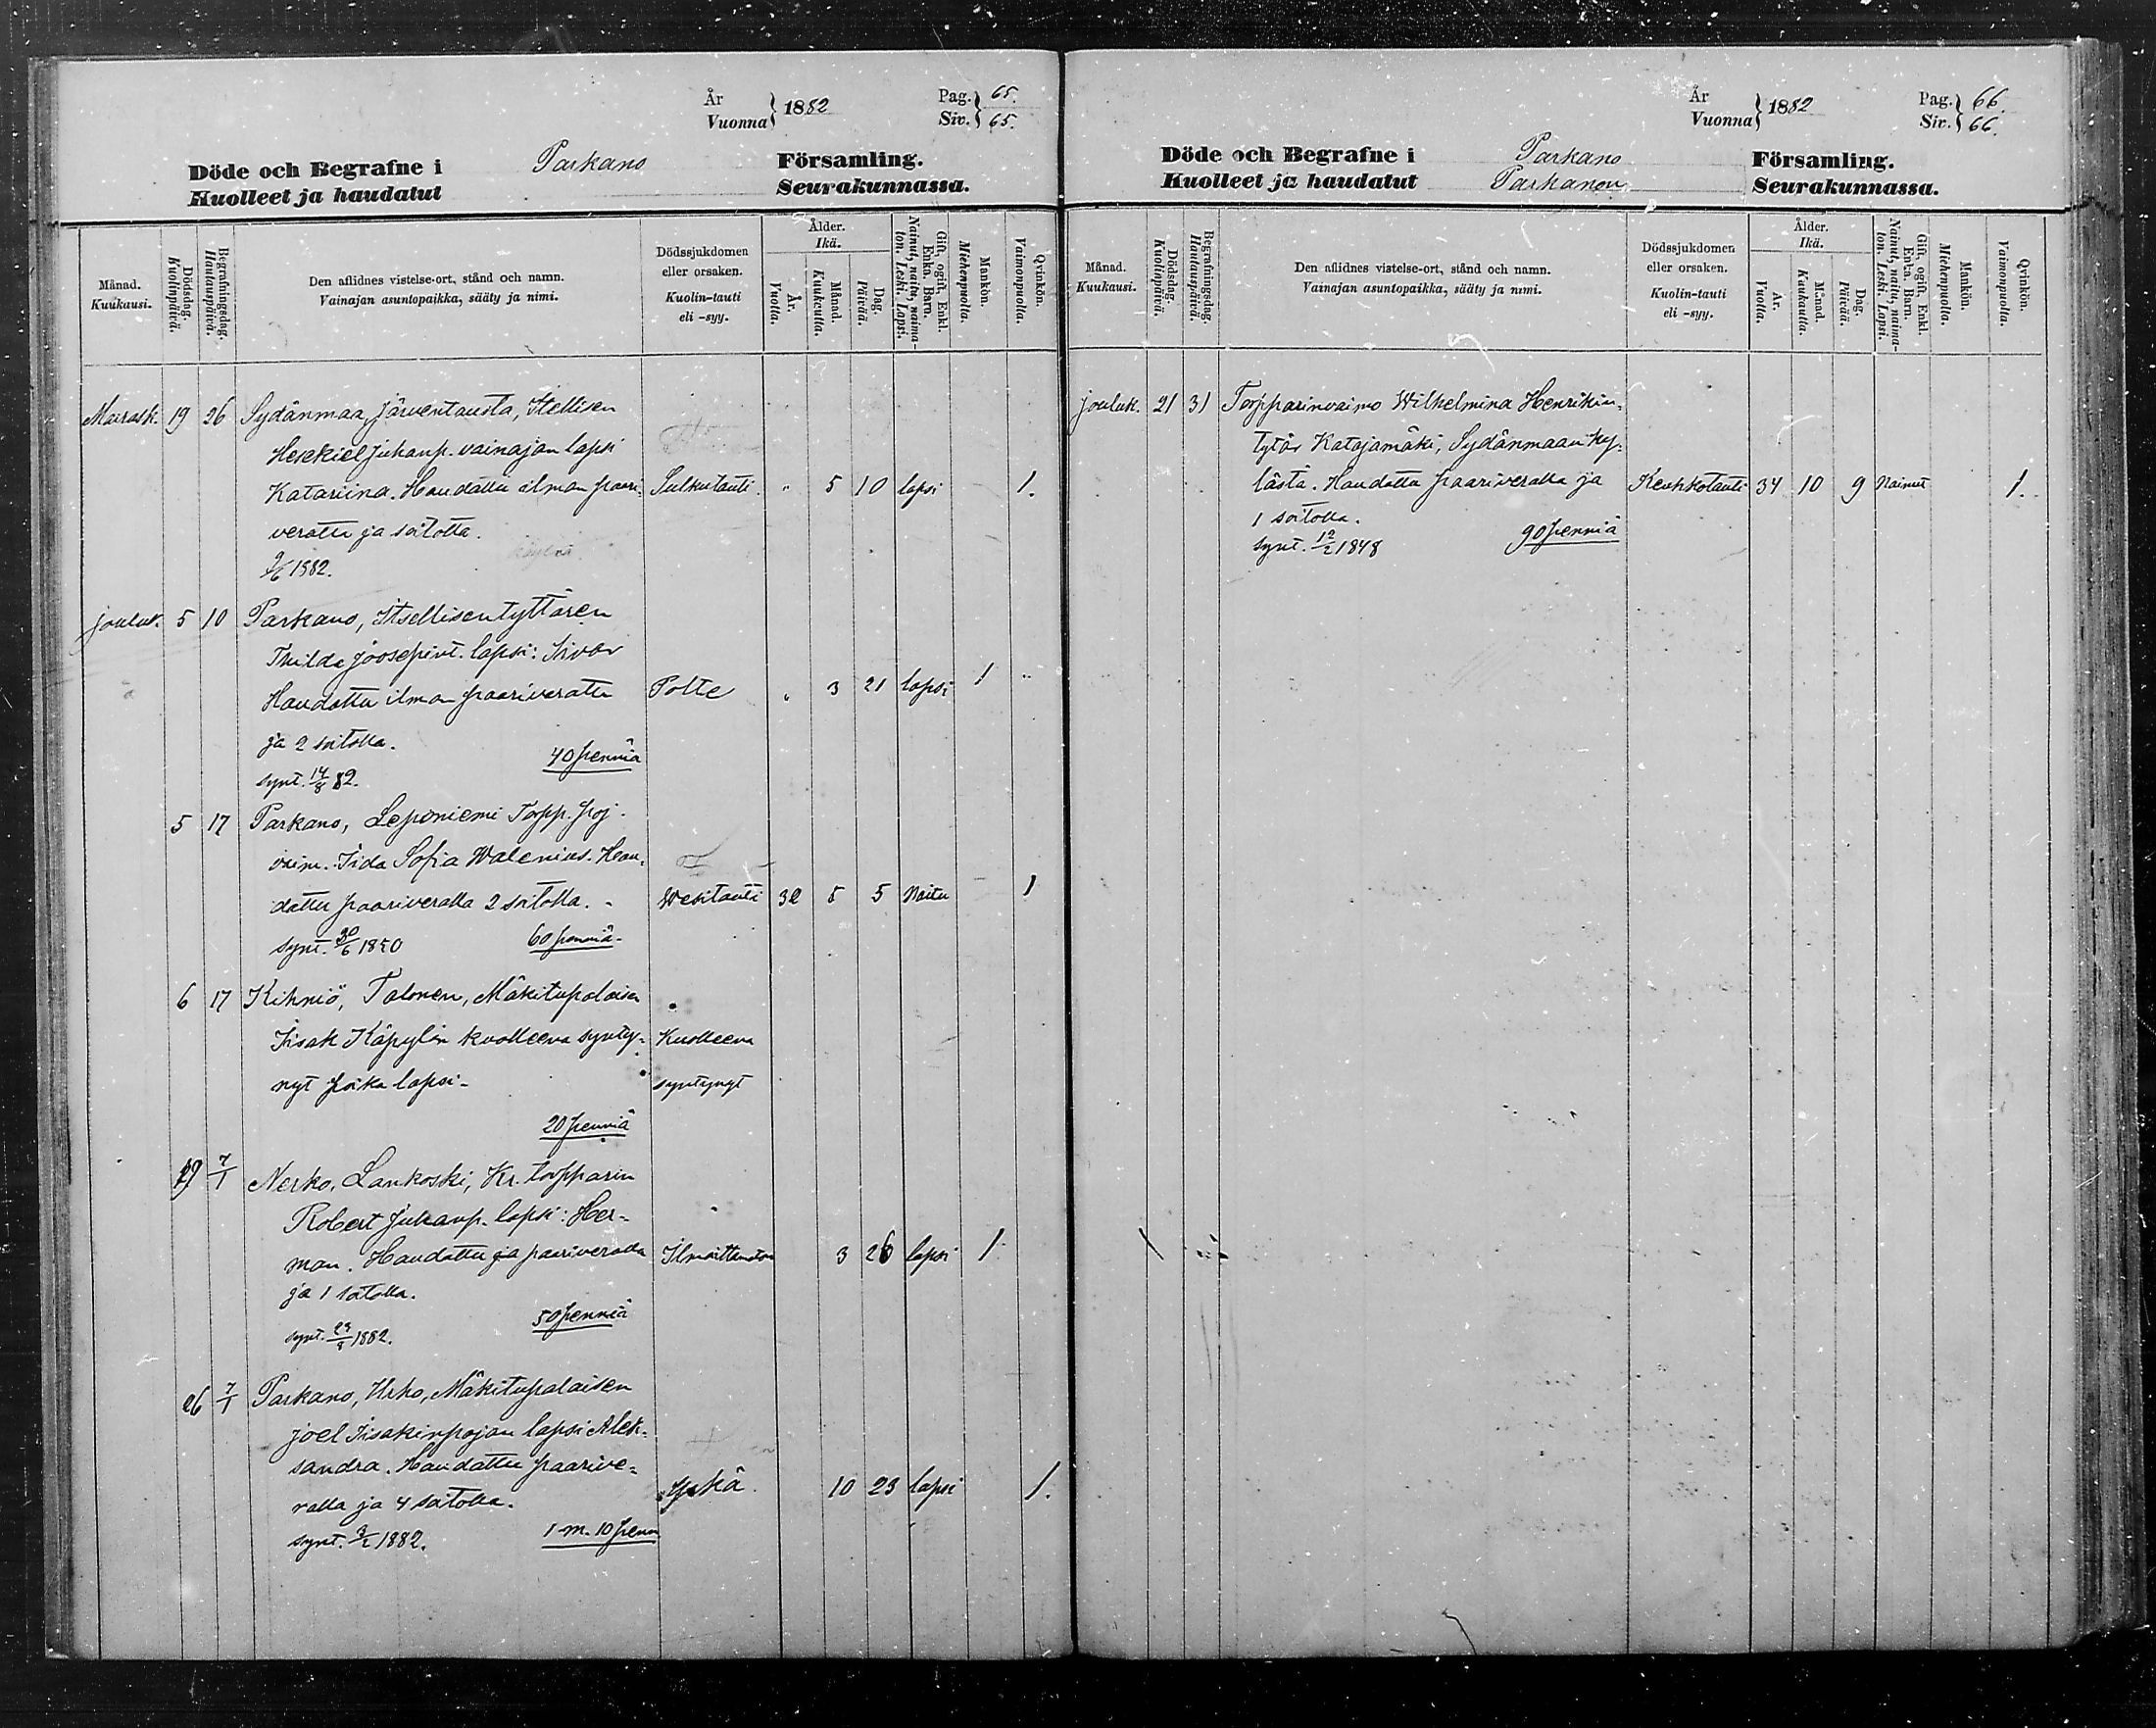 År
Vuonna } 1882
Pag. } 65.
Siv. } 65.
Döde och Begrafne i Parkano Församling.
Kuolleet ja haudatut Seurakunnassa.
Månad.
Kuukausi.
Dödsdag.
Kuolinpäivä.
Begrafningsdag.
Hautauspäivä.
Den aflidnes vistelse-ort, stånd och namn.
Vainajan asuntopaikka, sääty ja nimi.
Dödssjukdomen
eller orsaken.
Kuolin-tauti
eli -syy.
Ålder.
Ikä.
År.
Vuotta.
Månad.
Kuukautta.
Dag.
Päivää.
Gift, ogift, Enkl.
Enka. Barn.
Nainut, naitu, naima-
ton. Leski. Lapsi.
Mankön.
Miehenpuolta.
Qvinkön.
Vaimonpuolta.
Marrask. 19 26 Sydänmaa, Järventausta, Itellisen
Hesekiel Juhanp. vainajan lapsi
Katariina. Haudattu ilman paari- Sulkutauti. " 5 10 lapsi 1.
veratta ja soitotta.
1882.
jouluk. 5 10 Parkano, Itsellisentyttären
Thilda Joosepint. lapsi: Iivar
Haudattu ilman paariveratta Polte " 3 21 lapsi 1 "
ja 2 soitolla. 40 penniä
synt. 14/8 82.
5 17 Parkano, Leponiemi Torpp. poj.
vaim. Iida Sofia Walenius. Hau-
dattu paariveralla 2 soitolla. Wesitauti 32 5 5 Naitu 1
synt. 30/6 1850 60 penniä
6 17 Kihniö, Talonen, Mäkitupalaisen
Iisak Käpylän kuolleena synty- Kuolleena
nyt poika lapsi. syntynyt
20 penniä
29 7/1 Nerko, Lankoski, Kr. torpparin
Robert Juhanp. lapsi: Her-
man. Haudattu ja paariveralla Ilmoittamaton 3 26 lapsi 1
ja 1 soitolla.
50 penniä
synt. 1882.
26 7/1 Parkano, Urho, Mäkitupalaisen
Joel Iisakinpojan lapsi Alek-
sandra. Haudattu paarive-
ralla ja 4 soitolla. Yskä 10 23 lapsi 1.
synt. 3/2 1882. 1 m. 10 penn
År
Vuonna } 1882
Pag. } 66.
Siv. } 66.
Döde och Begrafne i Parkano Församling.
Kuolleet ja haudatut Parkanon Seurakunnassa.
Månad.
Kuukausi.
Dödsdag.
Kuolinpäivä.
Begrafningsdag.
Hautauspäivä.
Den aflidnes vistelse-ort, stånd och namn.
Vainajan asuntopaikka, sääty ja nimi.
Dödssjukdomen
eller orsaken.
Kuolin-tauti
eli -syy.
Ålder.
Ikä.
År.
Vuotta.
Månad.
Kuukautta.
Dag.
Päivää.
Gift, ogift, Enkl.
Enka. Barn.
Nainut, naitu, naima-
ton. Leski. Lapsi.
Mankön.
Miehenpuolta.
Qvinkön.
Vaimonpuolta.
jouluk. 21 31 Torpparinvaimo Wilhelmina Henrikin-
tytär Katajamäki, Sydänmaan ky-
lästä. Haudattu paariveralla ja Keuhkotauti 34 10 9 Nainut 1.
1 soitolla.
synt. 12/2 1848 90 penniä